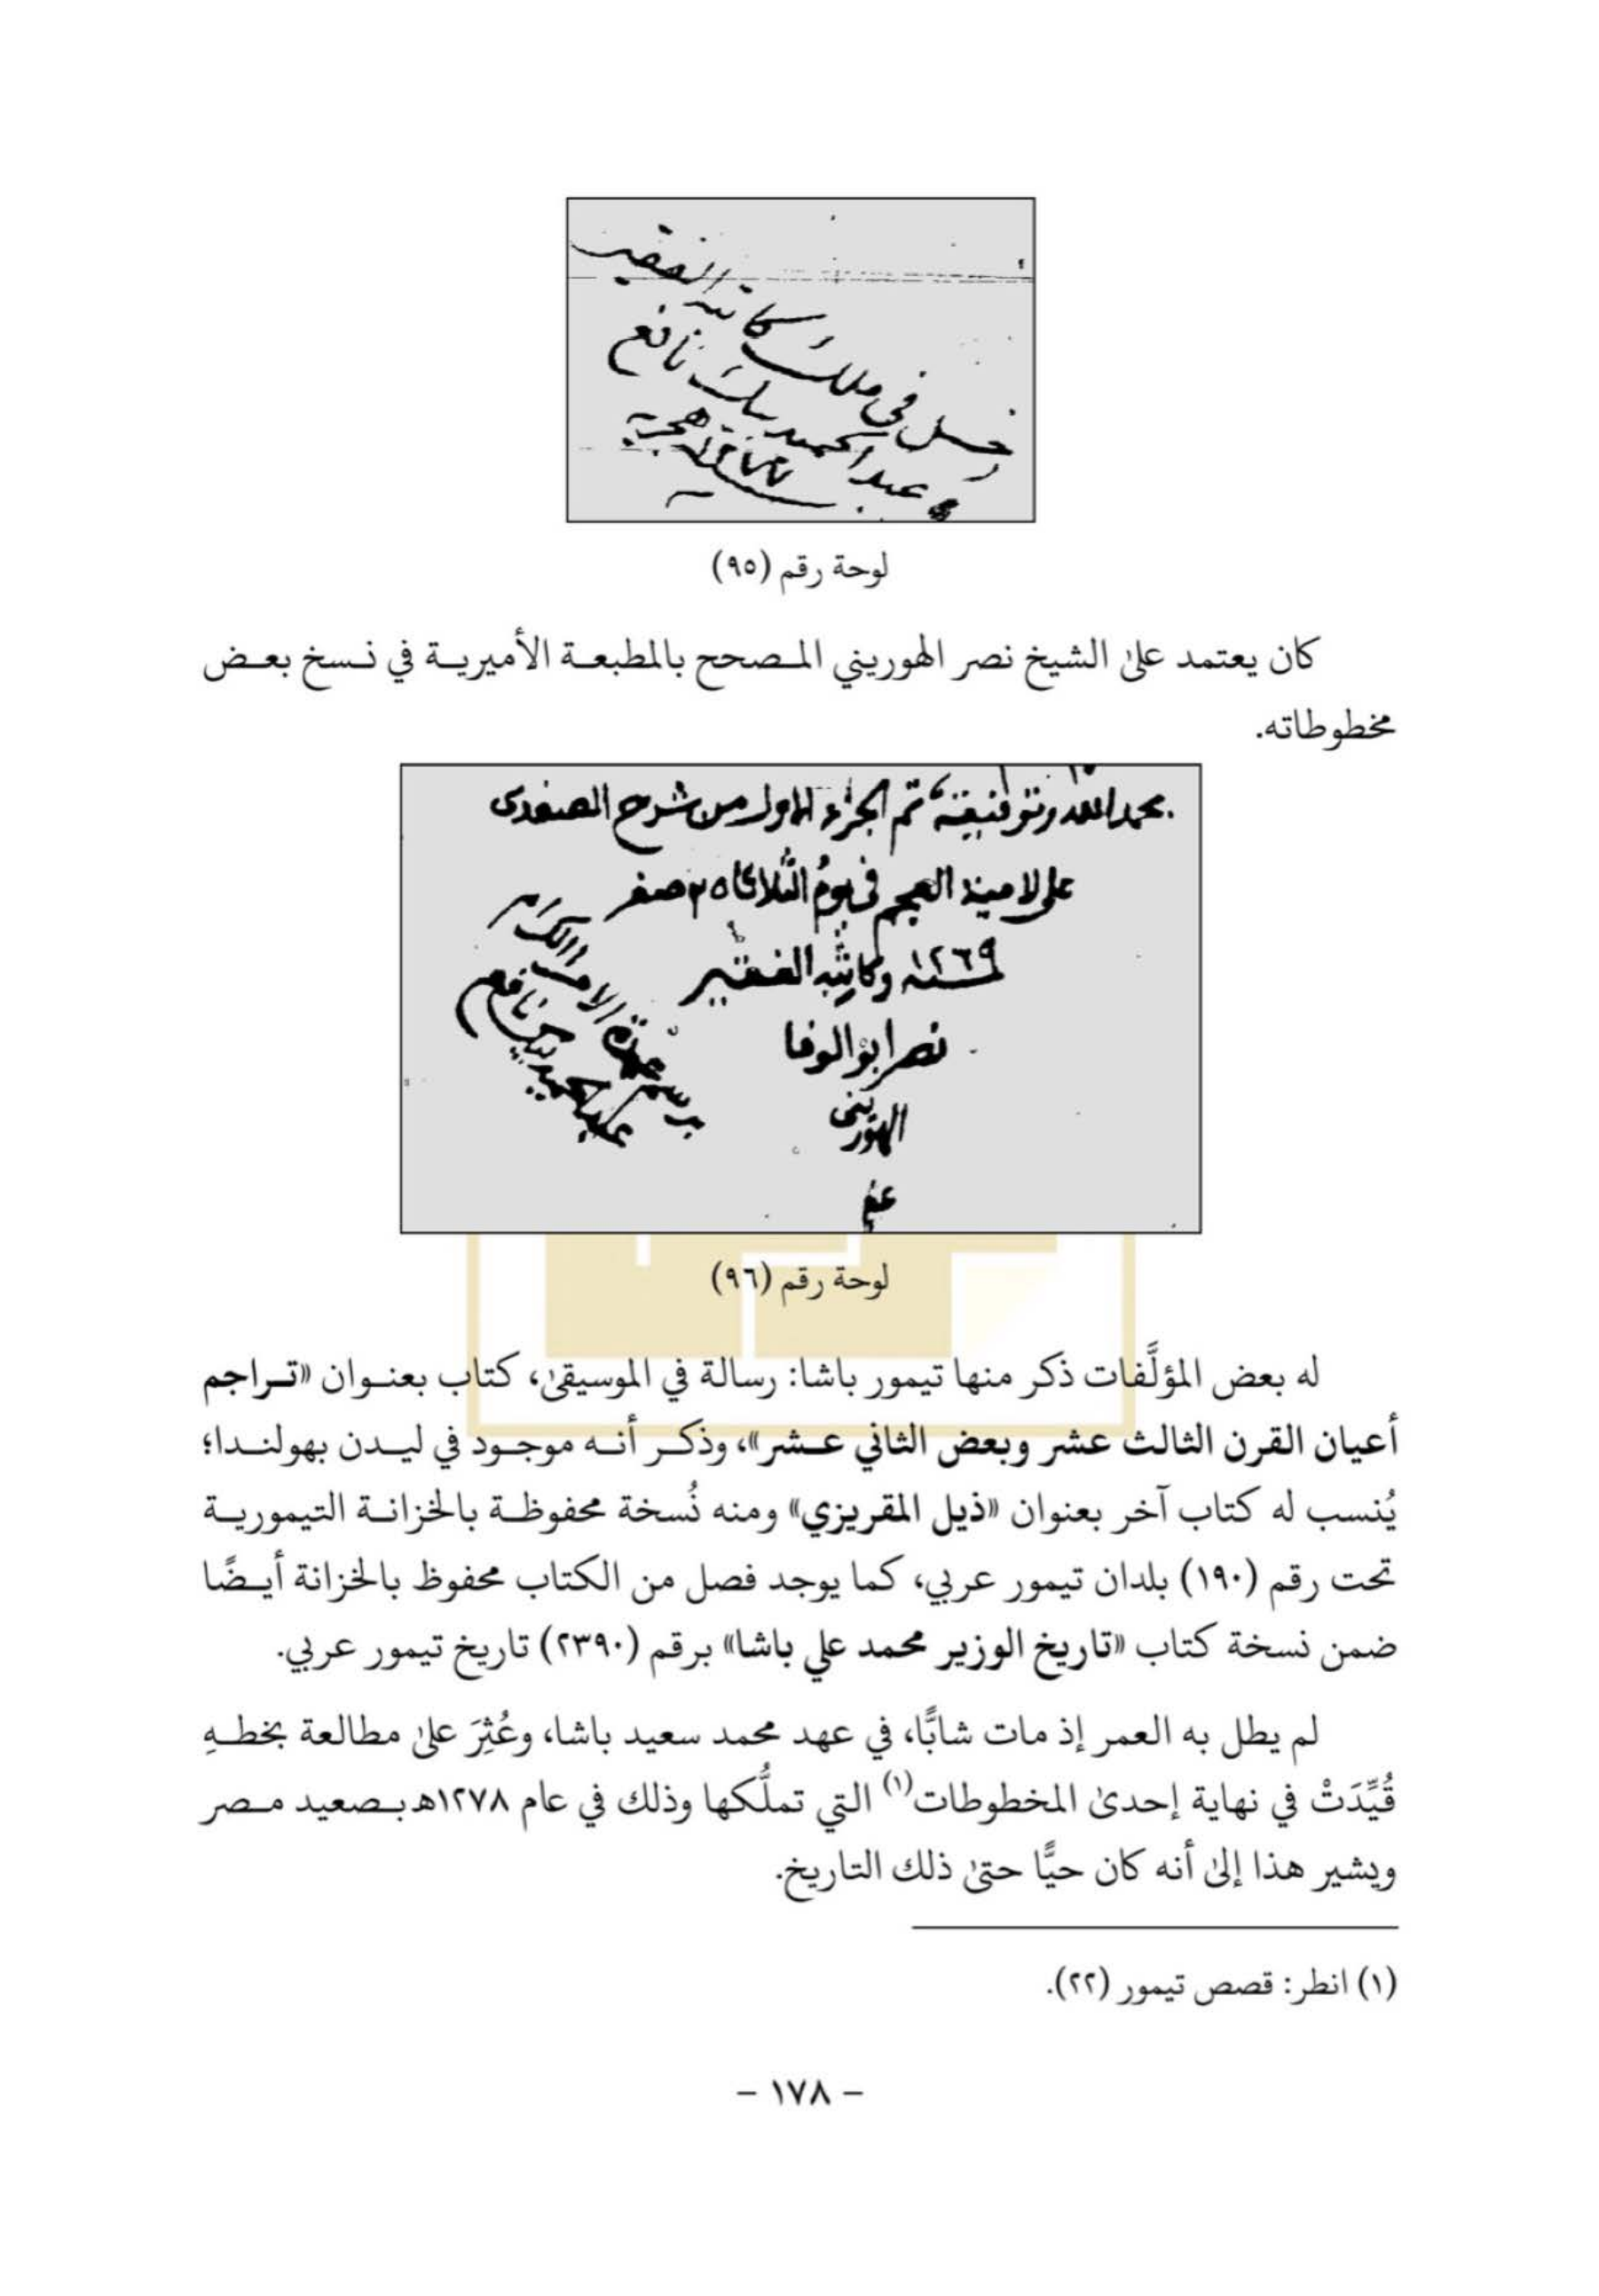 دخل في ملك كاتبه الفقير
عبد الحميد بك نافع
سنة ١٢٧٧ هجرية
لوحة رقم (٩٥)
كان يعتمد على الشيخ نصر الهوريني المصحح بالمطبعة الأميرية في نسخ بعض
مخطوطاته.
بحمد الله وتوفيقه تم الجزء الاول من شرح الصفدى
على لامية العجم في يوم الثلاثا ٢٥ صفر
سنة ١٢٦٩ وكاتبه الفقير
نصر ابو الوفا
الهورينى
برسم عمدة الامرا الكرام
عبد الحميد بيك نافع
لوحة رقم (٩٦)
له بعض المؤلَّفات ذكر منها تيمور باشا: رسالة في الموسيقى، كتاب بعنوان «تراجم
أعيان القرن الثالث عشر وبعض الثاني عشر»، وذكر أنه موجود في ليدن بهولندا؛
يُنسب له كتاب آخر بعنوان «ذيل المقريزي» ومنه نُسخة محفوظة بالخزانة التيمورية
تحت رقم (١٩٠) بلدان تيمور عربي، كما يوجد فصل من الكتاب محفوظ بالخزانة أيضًا
ضمن نسخة كتاب «تاريخ الوزير محمد علي باشا» برقم (٢٣٩٠) تاريخ تيمور عربي.
لم يطل به العمر إذ مات شابًّا، في عهد محمد سعيد باشا، وعُثِرَ على مطالعة بخطهِ
قُيِّدَتْ في نهاية إحدى المخطوطات(١) التي تملُّكها وذلك في عام ١٢٧٨هـ بصعيد مصر
ويشير هذا إلى أنه كان حيًّا حتى ذلك التاريخ.
(١) انظر: قصص تيمور (٢٢).
- ١٧٨ -